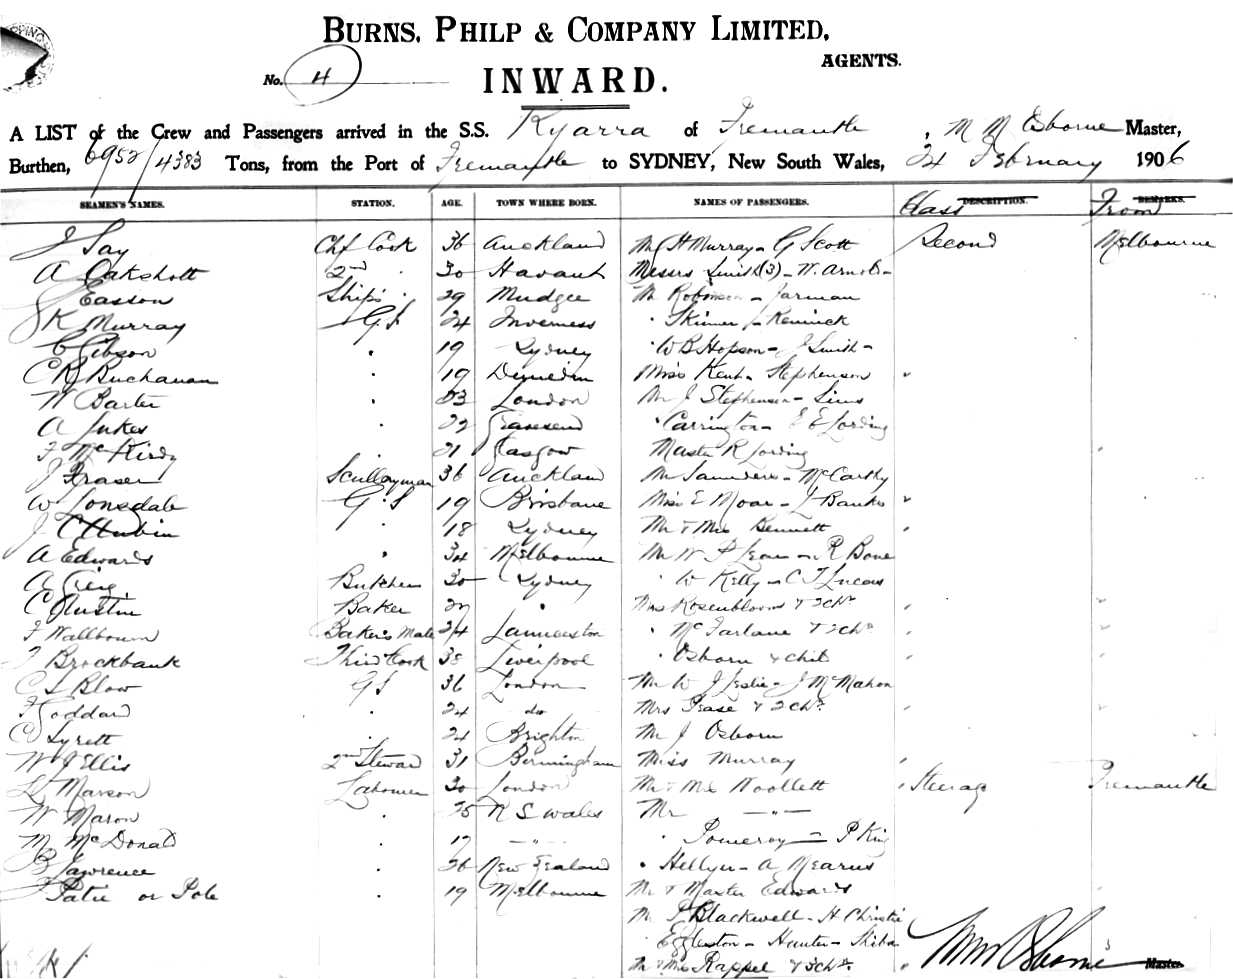 BURNS, PHILP & COMPANY LIMITED,
AGENTS.
No. 4
INWARD.
A LIST of the Crew and Passengers arrived in the S.S. Kyarra of Fremantle, M M Osborne Master,
Burthen, 6952/4383 Tons, from the Port of Fremantle to SYDNEY, New South Wales, 24 February 1906
SEAMEN'S NAMES. STATION. AGE. TOWN WHERE BORN. NAMES OF PASSENGERS. Class DESCRIPTION. From REMARKS.
J Say Chf Cook 36 Auckland Mr H Murray - G Scott Second Melbourne
A Oakshott 2nd " 30 Havant Messrs Smith (3) - W. Arnold -
Easson Ship's " 29 Mudgee Mr Robinson - Jarman
K Murray G S 24 Inverness " Skinner - Renwick
C Gibson " 19 Sydney " W B Hopson - J Smith -
C R Buchanan " 19 Dunedin Miss Kent - Stephenson "
W Barter " 23 London Mr J Stephenson - Sims
A Jukes 22 Gravesend " Carrington - E E Lording
F McKirdy " 21 Glasgow Master R Lording "
J Fraser Scullaryman 36 Auckland Mr Saunders - McCarthy
W Lonsdale G.S 19 Brisbane Miss E Moar - J Banks "
J 18 Sydney Mr & Mrs Bennett "
A Edwards " 34 Melbourne Mr W P - R Bone
A Butcher 30 Sydney " W Kelly - C T Lucas
C Austin Baker 27 " Mrs Rosenbloom & 2 chn " "
F Wallbourn Baker's Mate 24 Launceston " McFarlane & 2 chn " "
T Brockbank Third Cook 38 Liverpool " Osborn & child " "
C S Blow G S 36 London Mr W J Leslie - J McMahon
F Goddard " 24 do Mrs Pease & 2 chn " "
C Syrett " 24 Brighton Mr J Osborn
W J Ellis 2nd Steward 31 Birmingham Miss Murray
Marson Labourer 30 London Mr & Mrs Woollett " Steerage Fremantle
W Maron " 25 N S Wales Mr —"—
M McDonald " 17 —"— " Pomeroy - P King
B Lawrence " 26 New Zealand " Hellyer - A Mearns
Patie or Pole " 19 Melbourne Mr & Master Edwards "
Mr Blackwell - H Christie
" Eggleston - Hunter - Shiba
Mr & Mrs Rappel & 3 chn. " M M Osborne Master